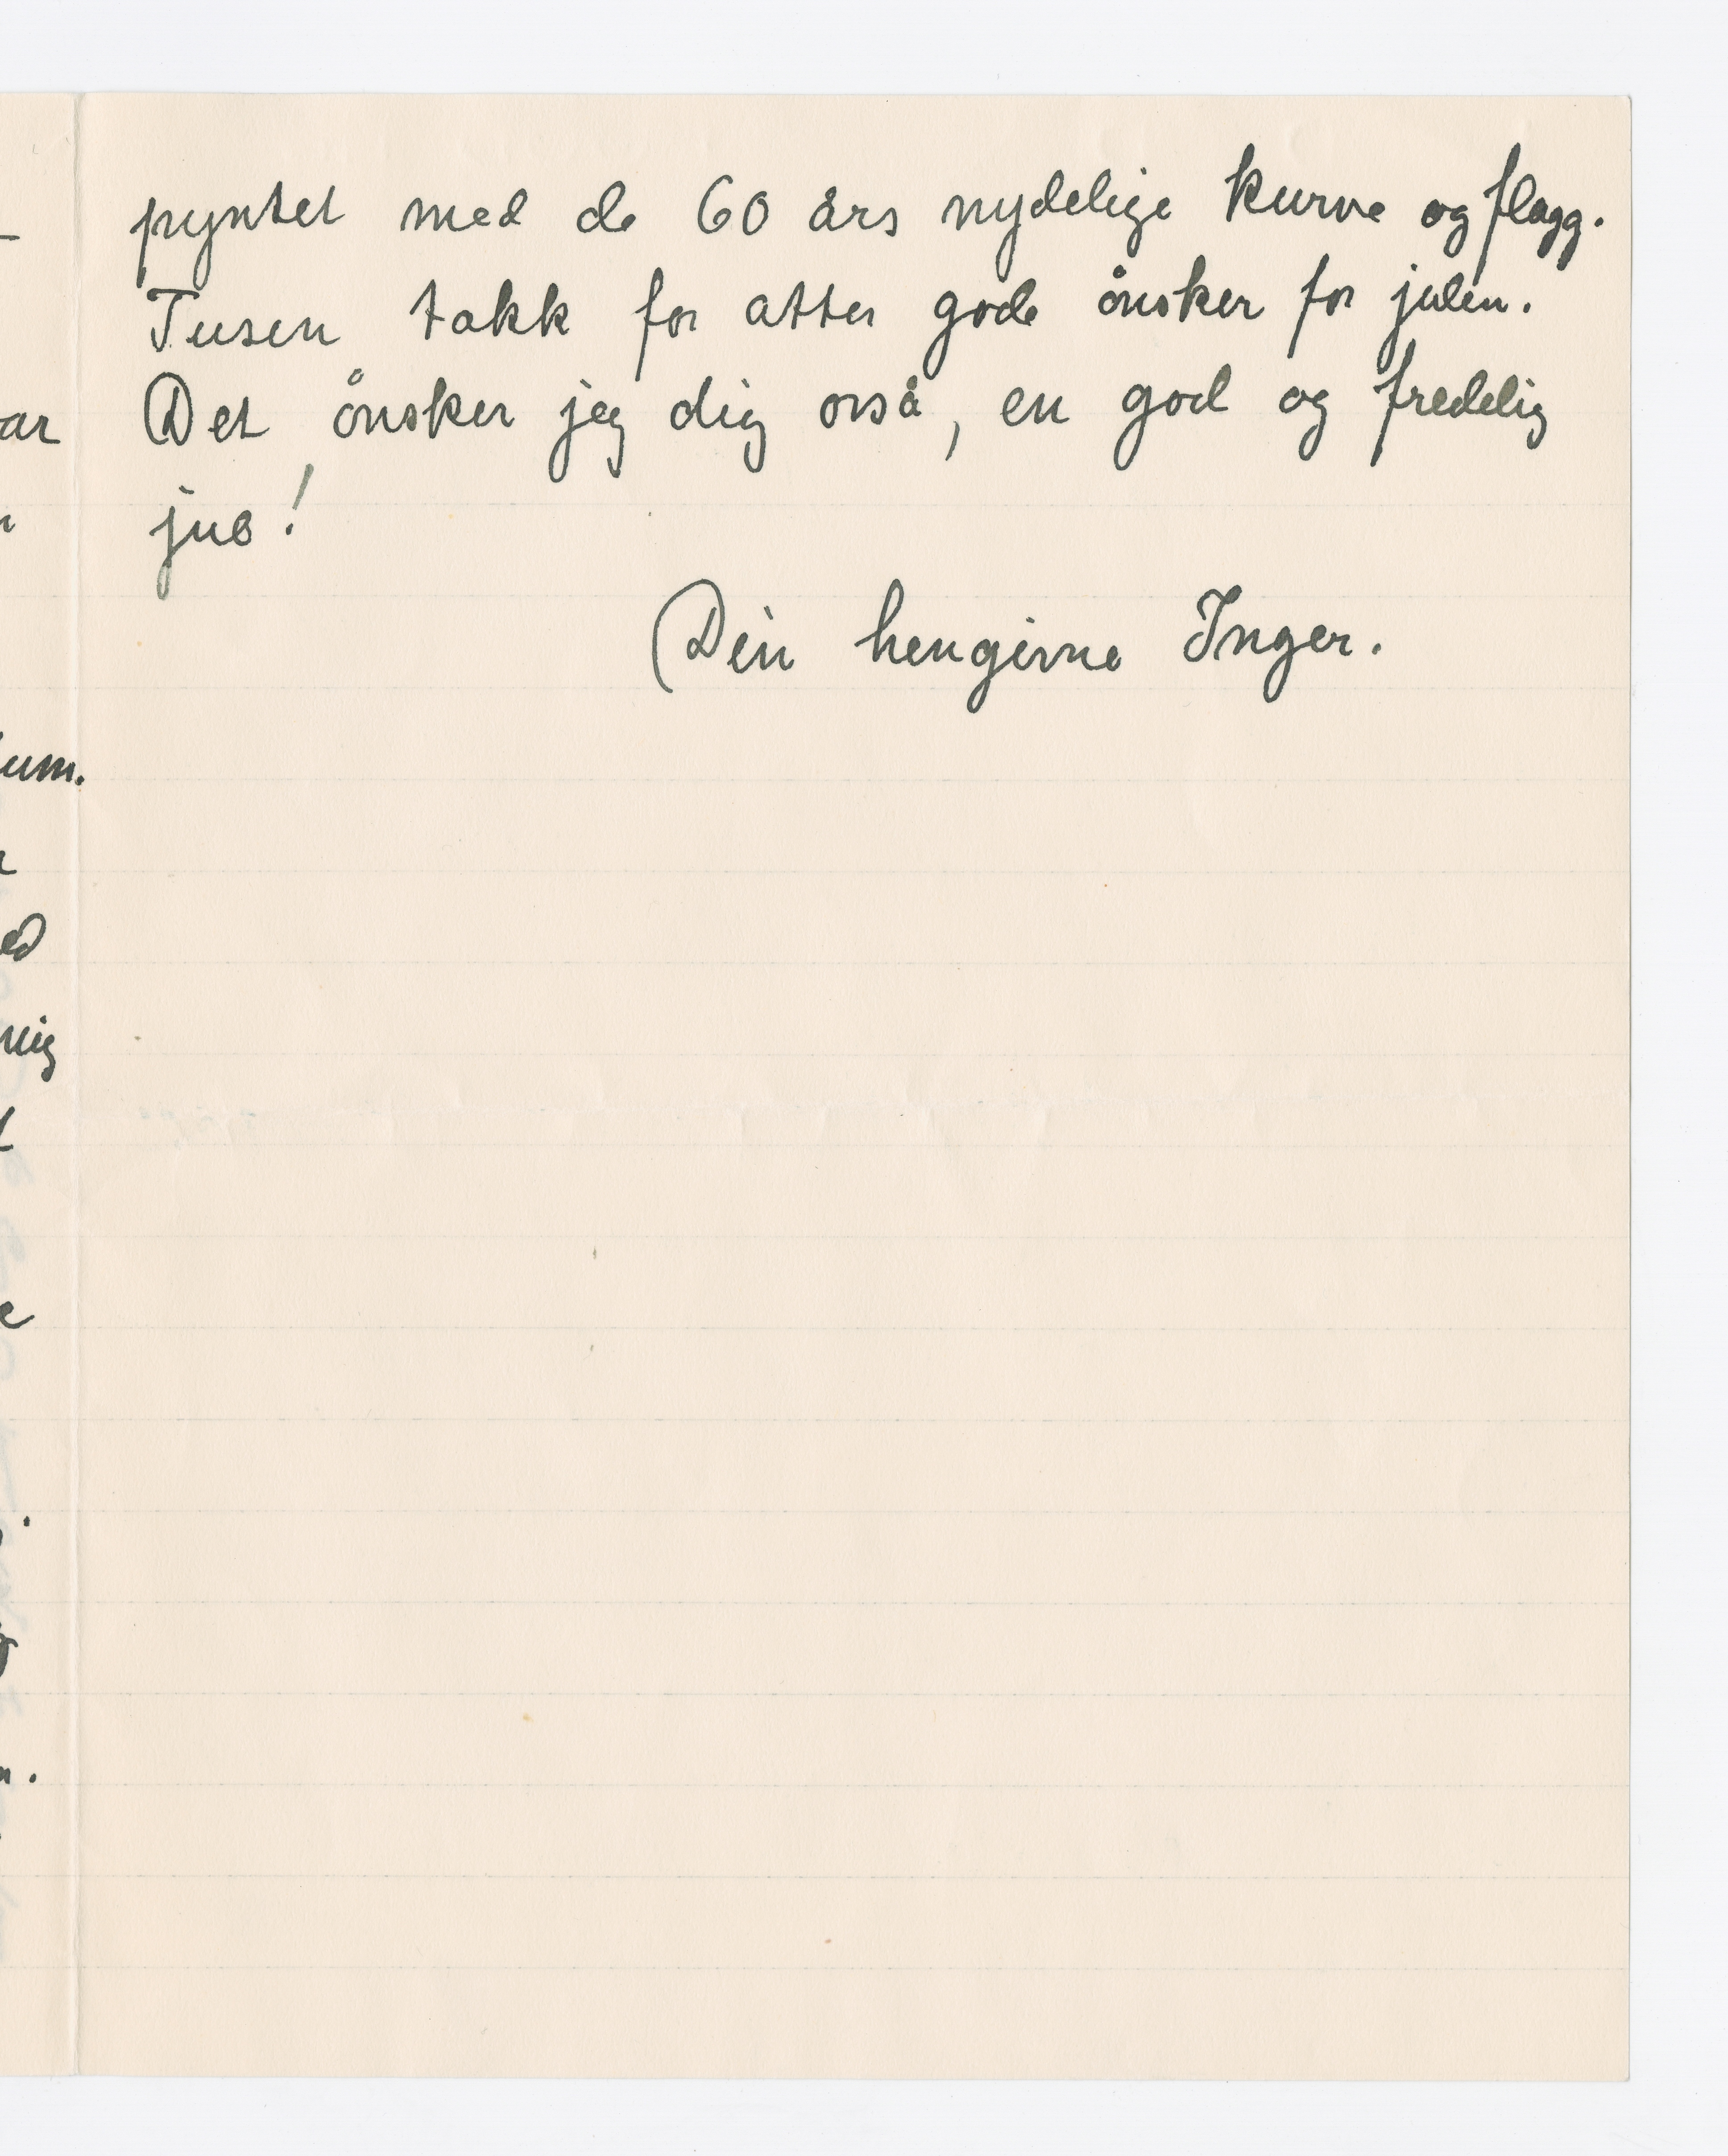 pyntet med de 60 års nydelige kurve og flagg.
Tusen takk for atter gode ånsker for julen.
Det ånsker jeg dig osså, en god og fredelig
jul!
Din hengivne Inger.
ar
um.
ed
mig